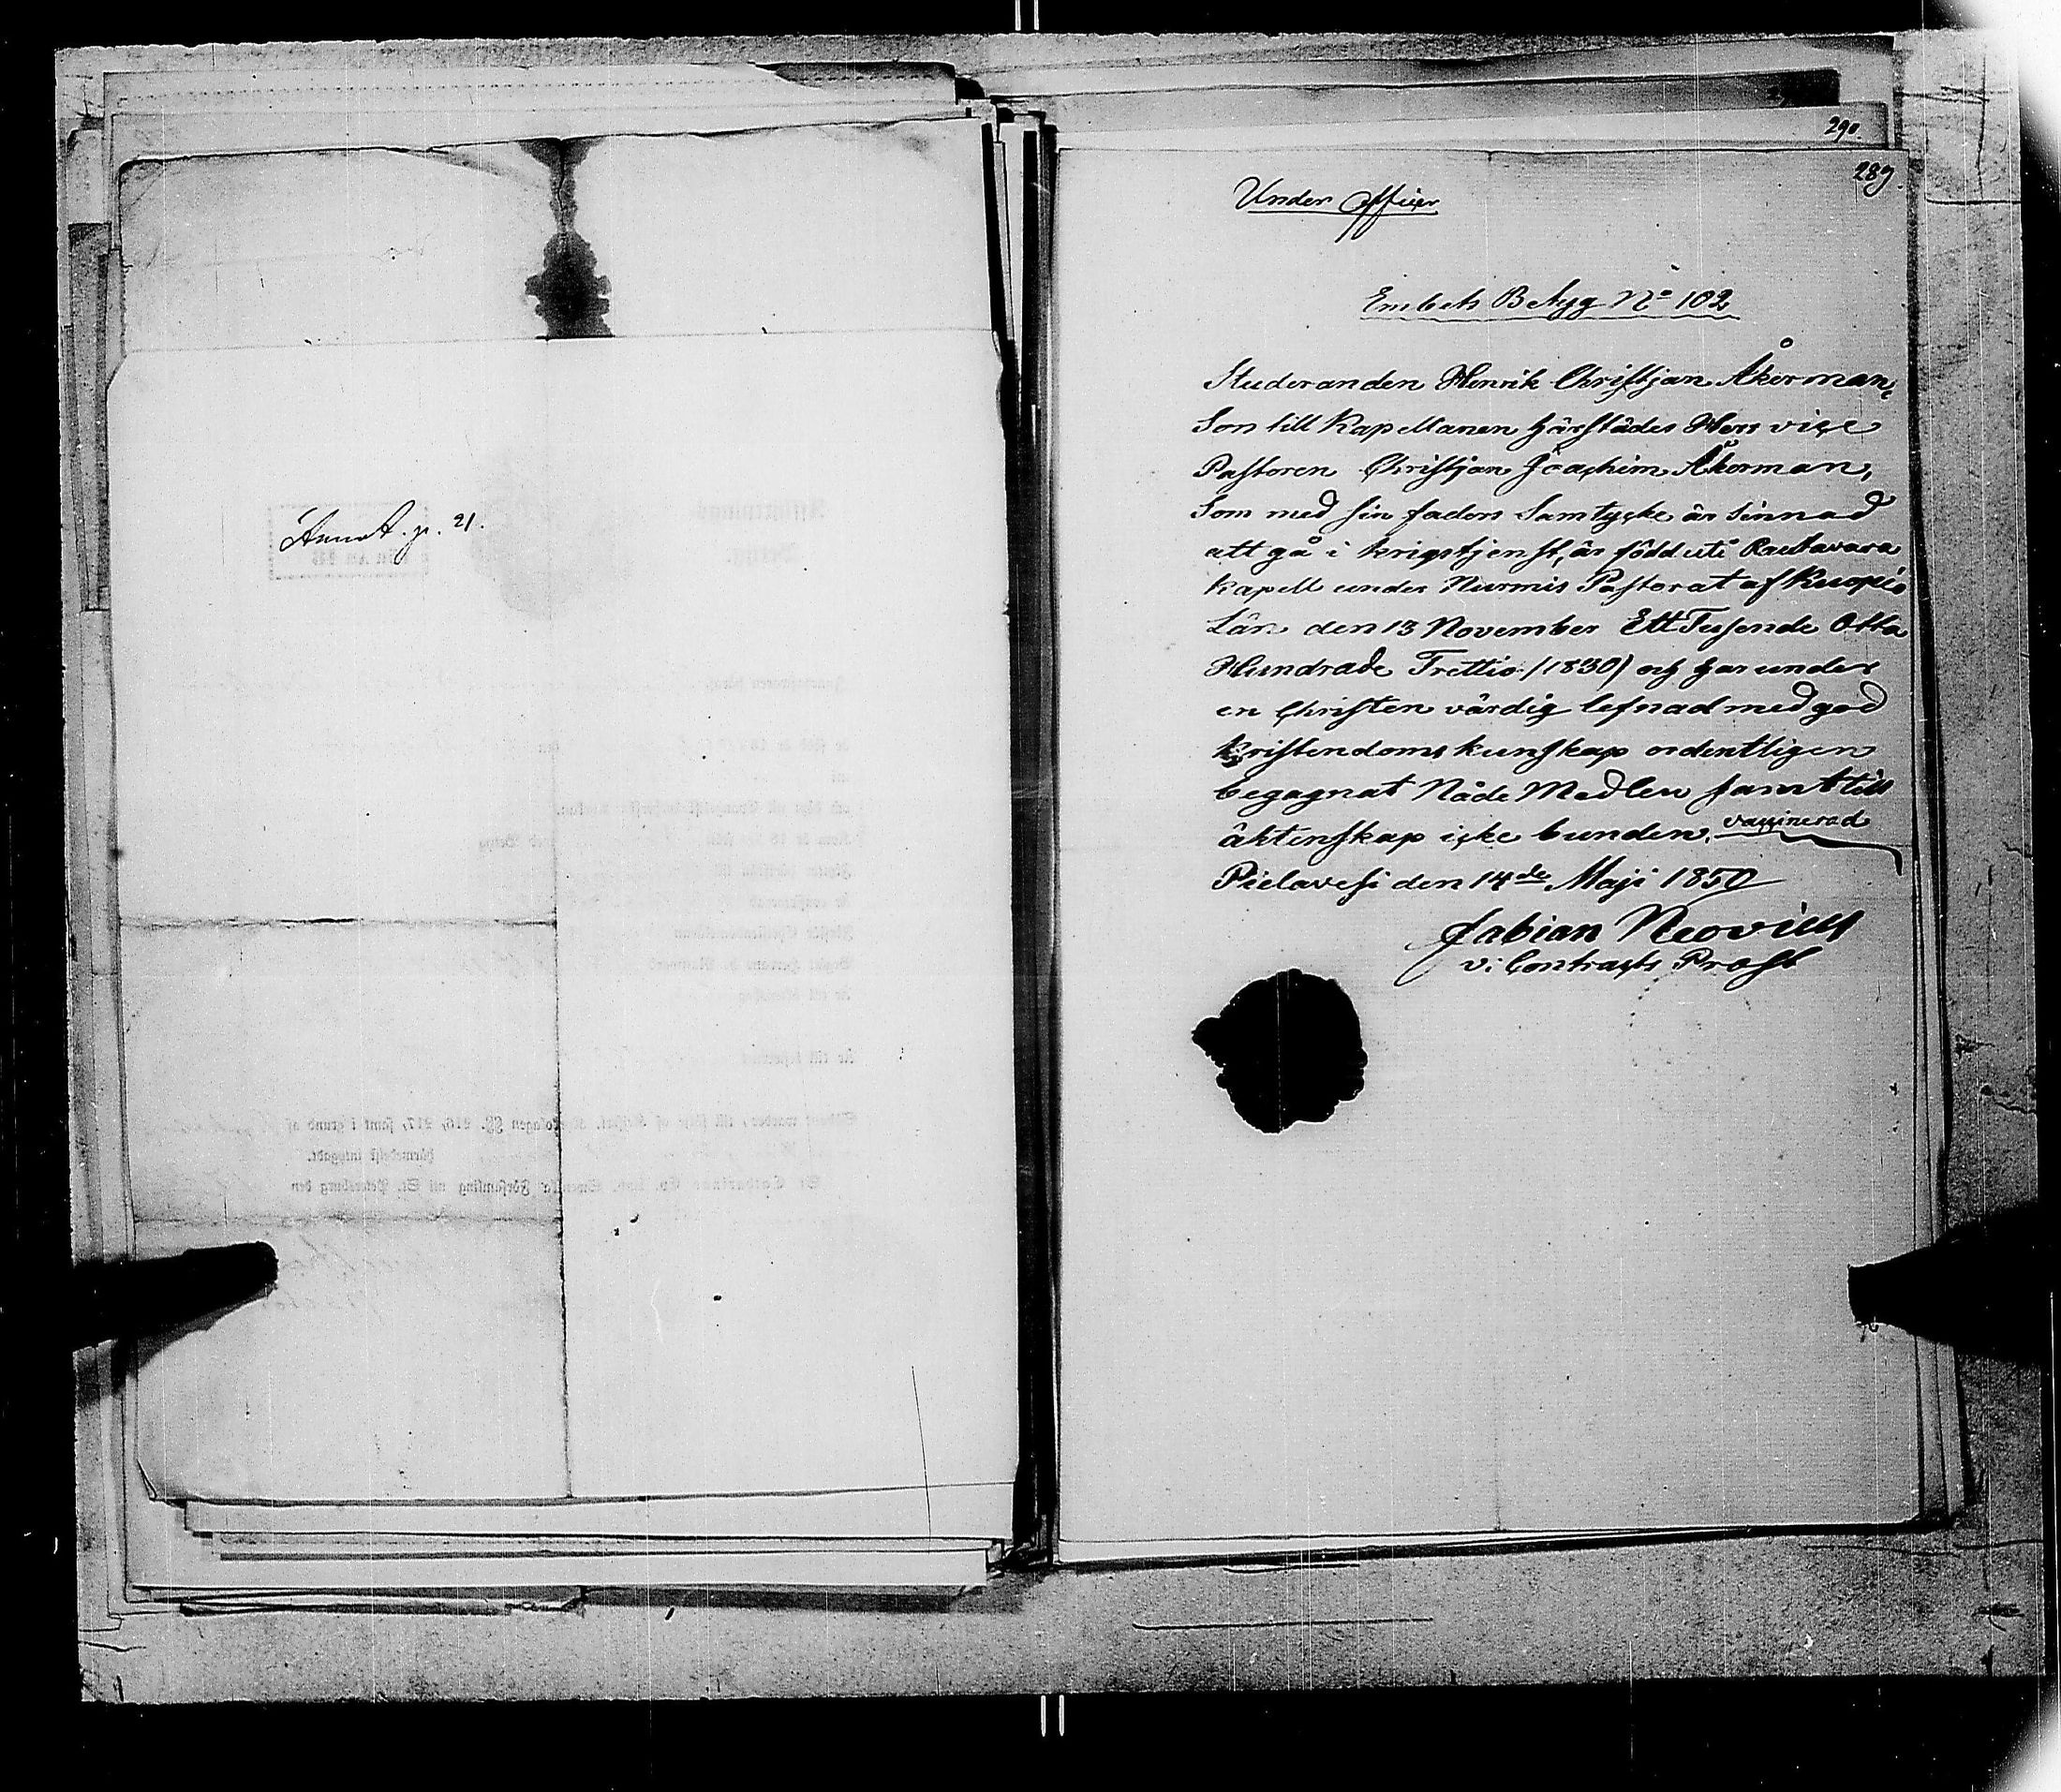 Annot. p. 21.
290.
289.
Under officer
Embets Betyg No 102
Studeranden Henrik Christjan Åkerman,
Son till Kapellanen härstädes Herr vice
Pastoren Christjan Joachim Åkerman,
Som med sin faders Samtycke är sinnad
att gå i krigstjenst, är född uti Rautavara
Kapell under Nurmis Pastorat af Kuopio
Län den 13 November Ett Tusende Otta
Hundrade Trettio /1830/ och har under
en Christen värdig lefnad med god
Kristendoms kunskap ordentligen
begagnat Nåde Medlen samt till
äktenskap icke bunden. vaccinerad
Pielavesi den 14de Maji 1850
Fabian Neovius
v: Contracts Prost